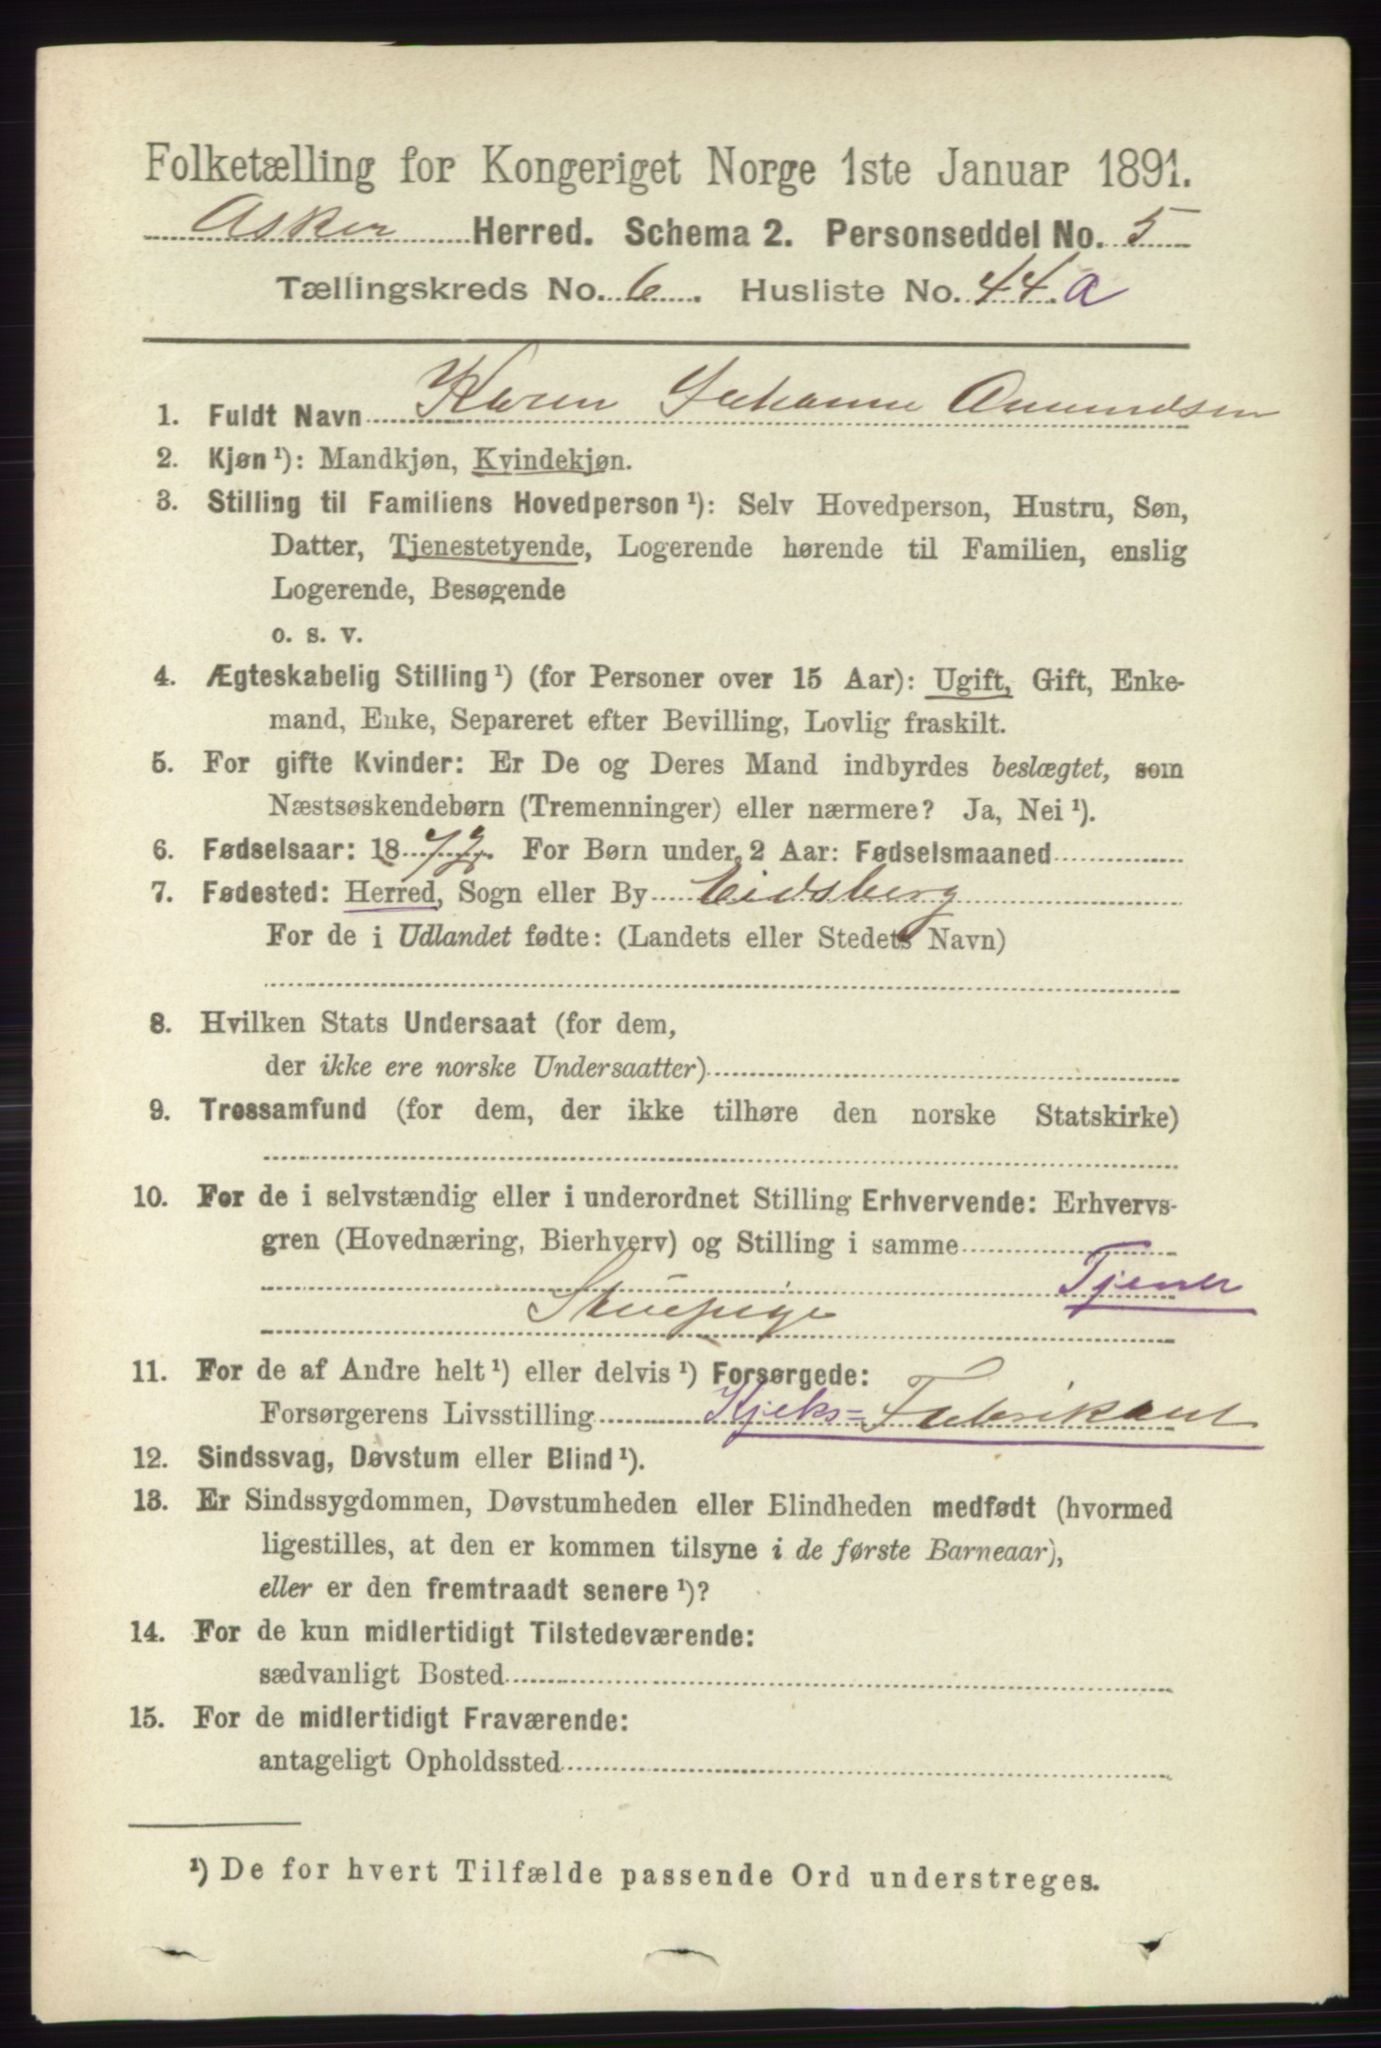 Folketælling for Kongeriget Norge 1ste Januar 1891.
Asker Herred. Schema 2. Personseddel No. 5
Tællingskreds No. 6. Husliste No. 44.a
1. Fuldt Navn Karen Johanne Amundsen
2. Kjøn¹): Mandkjøn, Kvindekjøn.
3. Stilling til Familiens Hovedperson¹): Selv Hovedperson, Hustru, Søn,
Datter, Tjenestetyende, Logerende hørende til Familien, enslig
Logerende, Besøgende
o. s. v.
4. Ægteskabelig Stilling¹) (for Personer over 15 Aar): Ugift, Gift, Enke-
mand, Enke, Separeret efter Bevilling, Lovlig fraskilt.
5. For gifte Kvinder: Er De og Deres Mand indbyrdes beslægtet, som
Næstsøskendebørn (Tremenninger) eller nærmere? Ja, Nei¹).
6. Fødselsaar: 1872. For Børn under 2 Aar: Fødselsmaaned
7. Fødested: Herred, Sogn eller By Eidsberg
For de i Udlandet fødte: (Landets eller Stedets Navn)
8. Hvilken Stats Undersaat (for dem,
der ikke ere norske Undersaatter)
9. Trossamfund (for dem, der ikke tilhøre den norske Statskirke)
10. For de i selvstændig eller i underordnet Stilling Erhvervende: Erhvervs-
gren (Hovednæring, Bierhverv) og Stilling i samme
Tjener
Stuepige
11. For de af Andre helt¹) eller delvis¹) Forsørgede:
Forsørgerens Livsstilling Kjeks=Fabrikant
12. Sindssvag, Døvstum eller Blind¹).
13. Er Sindssygdommen, Døvstumheden eller Blindheden medfødt (hvormed
ligestilles, at den er kommen tilsyne i de første Barneaar),
eller er den fremtraadt senere¹)?
14. For de kun midlertidigt Tilstedeværende:
sædvanligt Bosted
15. For de midlertidigt Fraværende:
antageligt Opholdssted
¹) De for hvert Tilfælde passende Ord understreges.